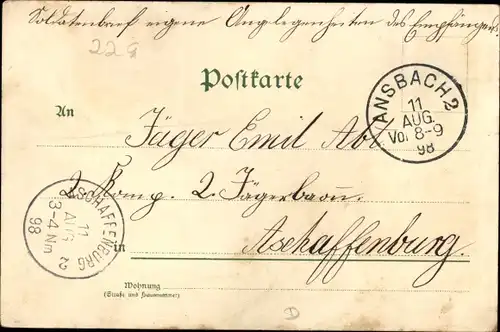 Soldatenbrief eigene Angelegenheiten des Empfängers.
229
Postkarte
ANSBACH 2
11
AUG.
Vor 8-9
98
An
Jäger Emil Abt
2. Komp. 2. Jägerbaon.
in Aschaffenburg.
ASCHAFFENBURG 2
11
AUG
3-4 Nm
98
Wohnung
(Straße und Hausnummer)
D